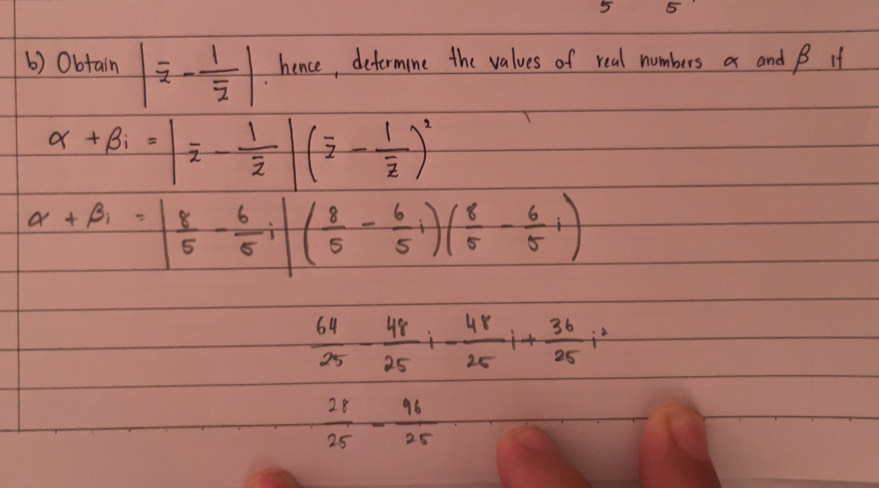 5 5
b) Obtain | z̄ - 1/z̄ | . hence, determine the values of real numbers α and β if
α + βi = | z̄ - 1/z̄ | ( z̄ - 1/z̄ )²
α + βi = | 8/5 - 6/5 i | ( 8/5 - 6/5 i ) ( 8/5 - 6/5 i )
64/25 - 48/25 i - 48/25 i + 36/25 i²
28/25 - 96/25